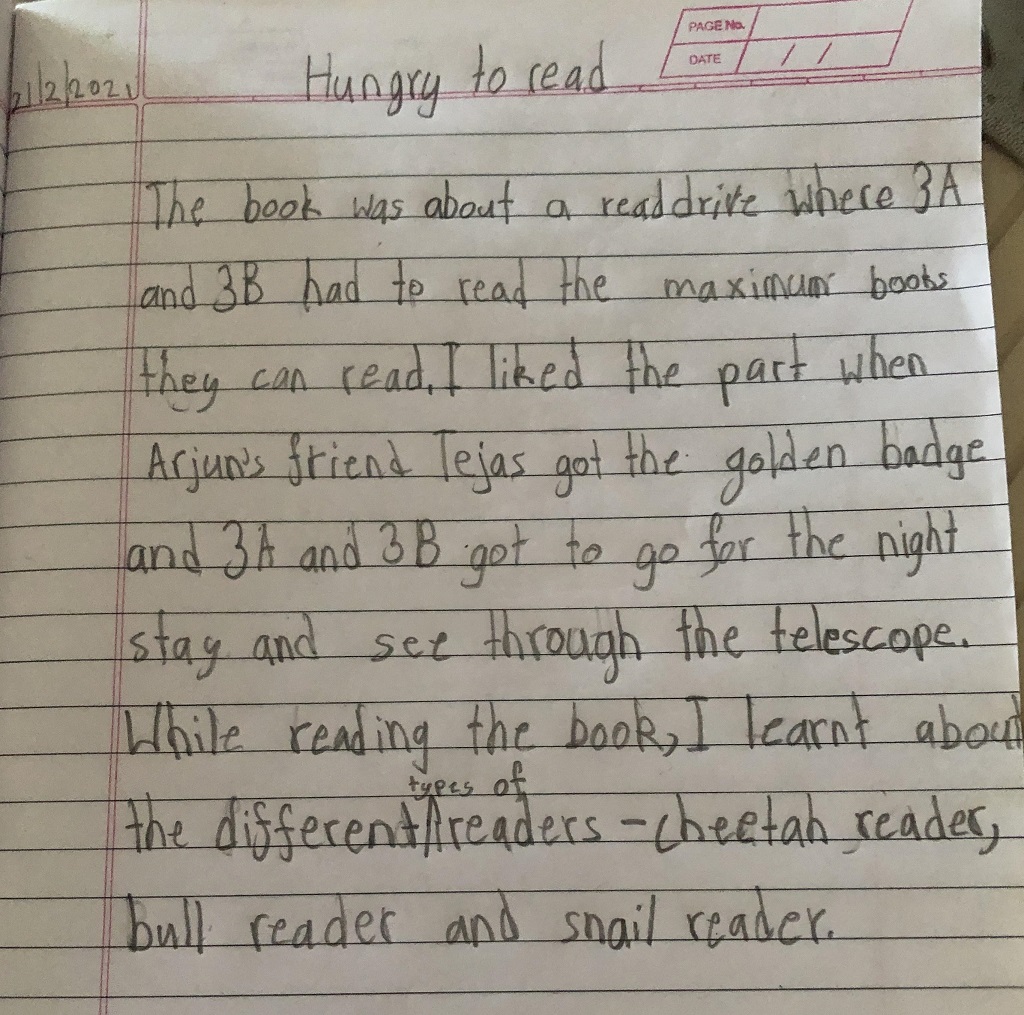 PAGE No.
DATE / /
21/2/2021
Hungry to read
The book was about a readdrive where 3A
and 3B had to read the maximum books
they can read. I liked the part when
Arjun's friend Tejas got the golden badge
and 3A and 3B got to go for the night
stay and see through the telescope.
While reading the book, I learnt about
types of
the different readers - cheetah reader,
bull reader and snail reader.